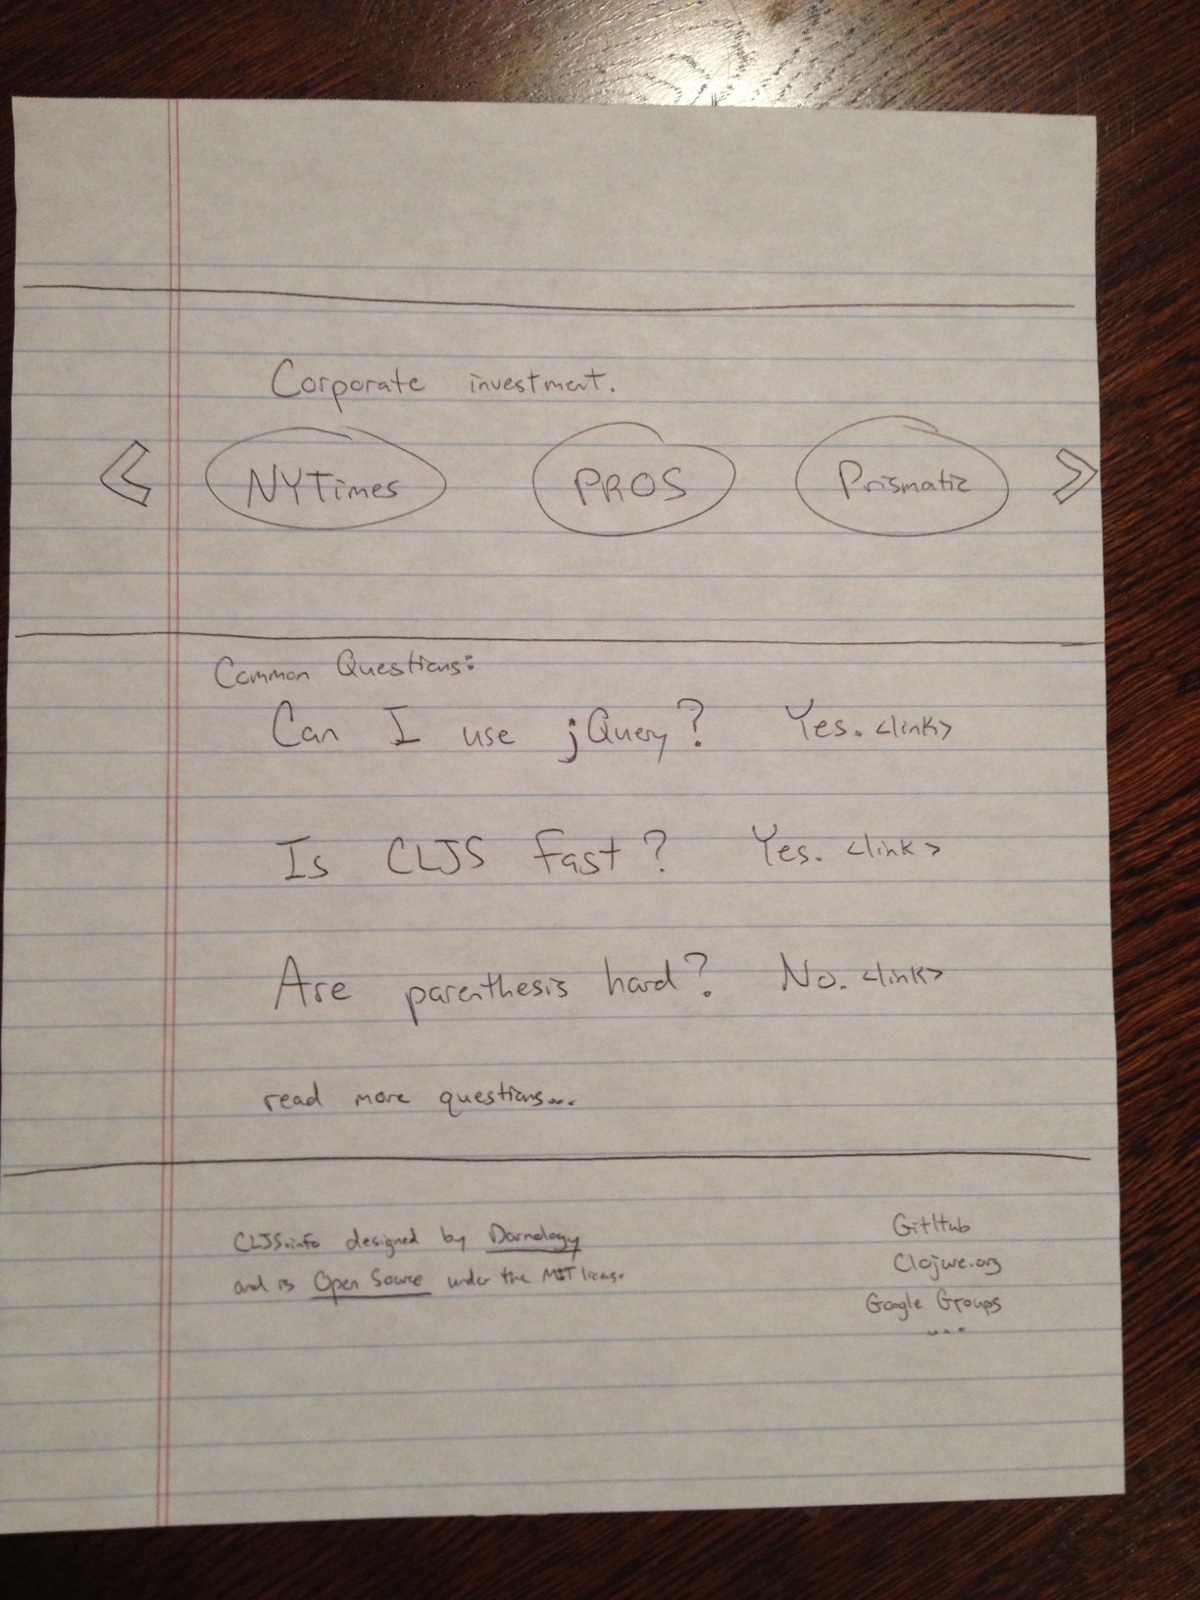 Corporate investment.
NYTimes PROS Prismatic
Common Questions:
Can I use jQuery? Yes. <link>
Is CLJS fast? Yes. <link>
Are parenthesis hard? No. <link>
read more questions...
CLJS.info designed by Darnology
and is Open Source under the MIT license
GitHub
Clojure.org
Google Groups
...